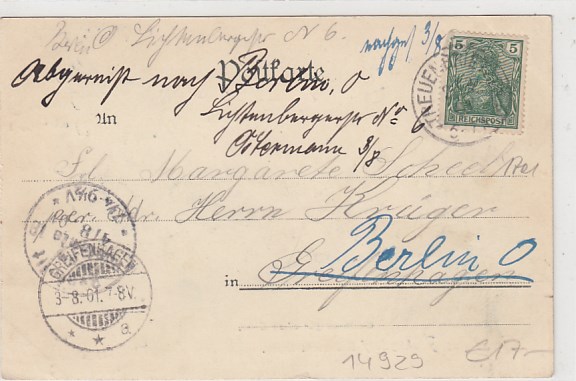 Berlin O Lichtenbergerstr N 6.
nachges 3/8
Abgereist nach Berlin, O
Postkarte
Lichtenbergerstr No 6
An
Ostermann 3/8
Frl. Margarete Scheel
Adr. Herrn Krüger
Berlin O
in Greifenhagen
5 5
REICHSPOST
TREUEN
GREIFENHAGEN
3-8.01.7-8V.
* * a
14929
€17-